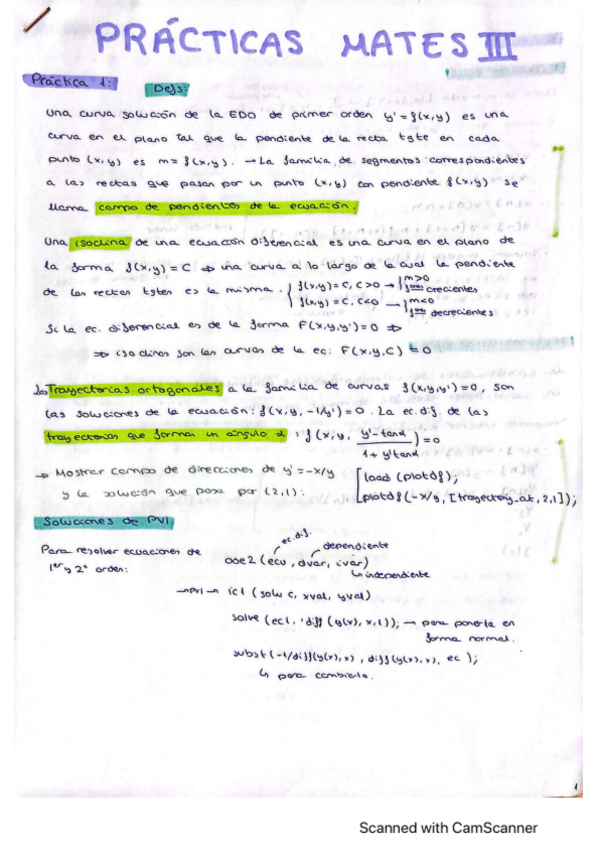 PRÁCTICAS MATES III
Práctica 1: Defs:
Una curva solución de la EDO de primer orden y' = f(x,y) es una
curva en el plano tal que la pendiente de la recta tgte en cada
punto (x,y) es m = f(x,y). → La familia de segmentos correspondientes
a las rectas que pasan por un punto (x,y) con pendiente f(x,y) se
llama campo de pendientes de la ecuación.
Una isoclina de una ecuación diferencial es una curva en el plano de
la forma f(x,y) = C ⇒ una curva a lo largo de la cual la pendiente
de las rectas tgtes es la misma. { f(x,y) = C, C>0 → { m>0 crecientes
f(x,y) = C, C<0 → { m<0 decrecientes
Si la ec. diferencial es de la forma F(x,y,y') = 0 ⇒
⇒ isoclinas son las curvas de la ec: F(x,y,C) = 0
Las Trayectorias ortogonales a la familia de curvas f(x,y,y') = 0, son
las soluciones de la ecuación: f(x,y,-1/y') = 0. La ec. dif. de las
trayectorias que forman un ángulo α: f(x,y, (y'-tanα)/(1+y'tanα)) = 0
→ Mostrar campo de direcciones de y' = -x/y [load(plotdf);
y la solución que pasa por (2,1): plotdf(-x/y, [trajectory_at, 2,1]);
Soluciones de PVI
Para resolver ecuaciones de
1er y 2º orden:
ec. dif. dependiente
ode2 (ecu, dvar, ivar)
↳ independiente
→ PVI → ic1 (solu c, xval, yval)
solve (ec1, 'diff (y(x), x, 1)); → para ponerla en
forma normal.
subst (-1/diff(y(x),x), diff(y(x),x), ec);
↳ para cambiarla.
1
Scanned with CamScanner